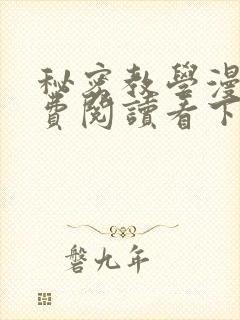 秘密教學漫
費閱讀看下
磐九年